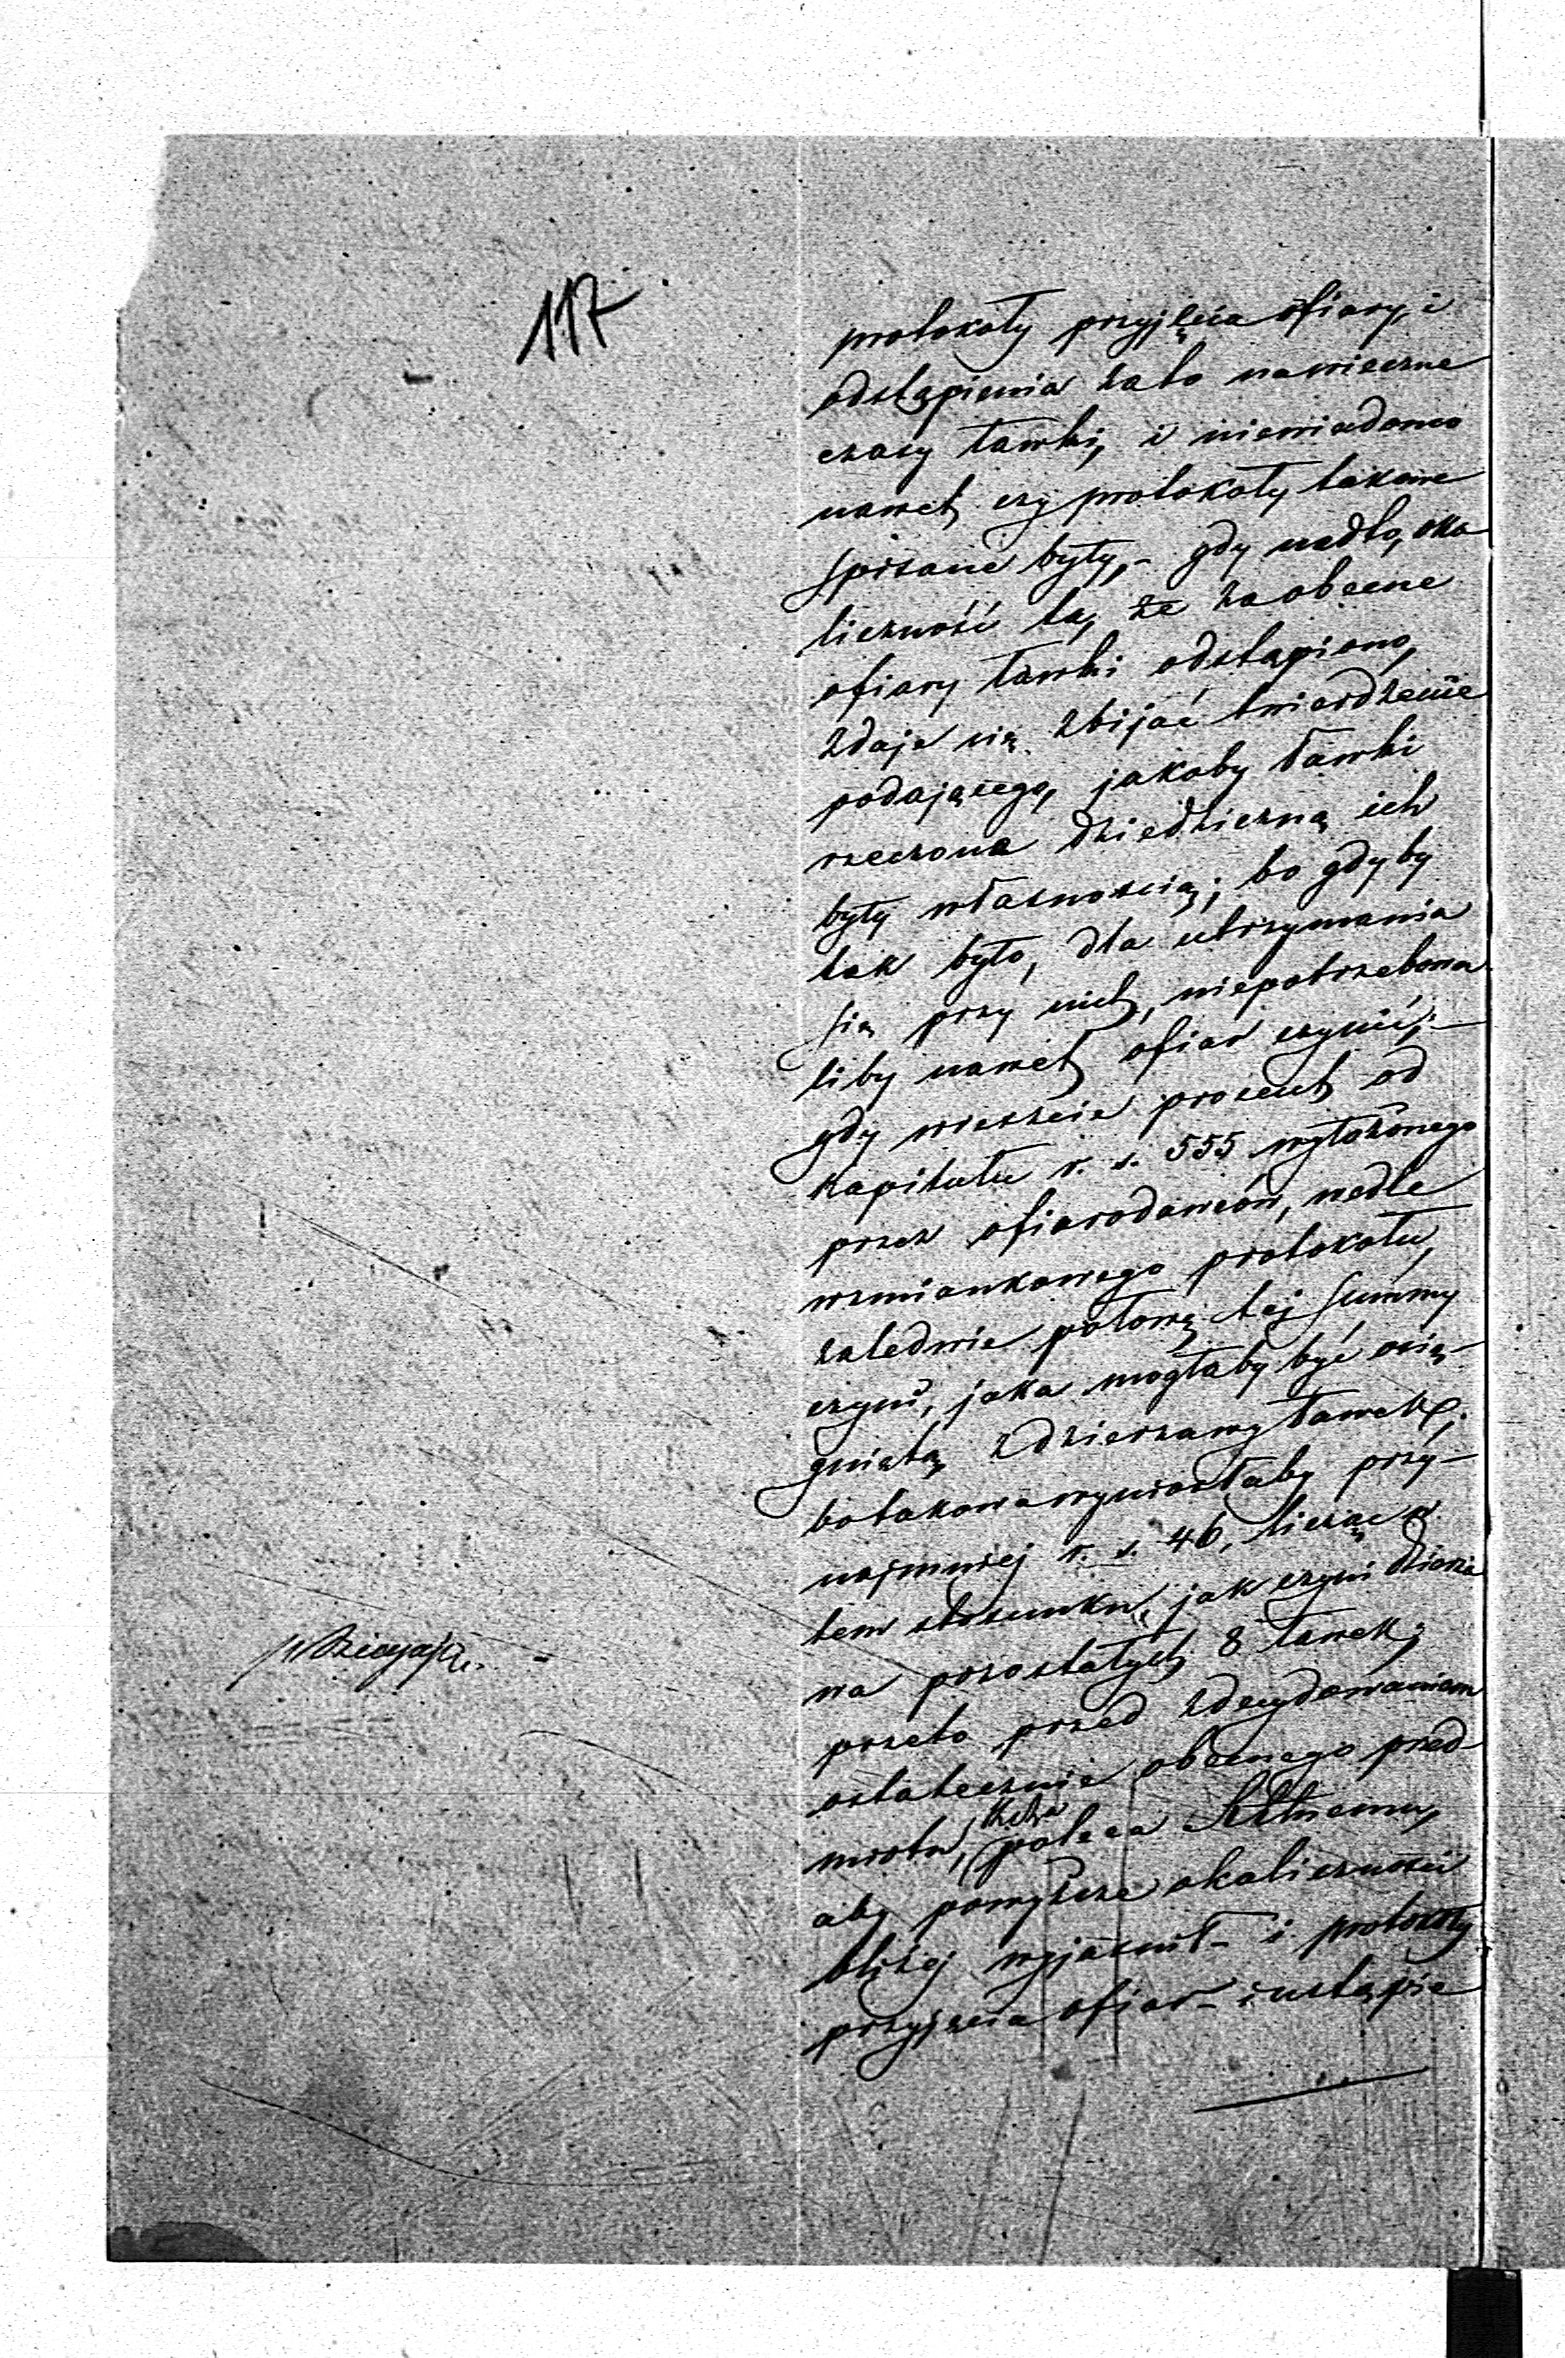 117
protokoły przyjęcia ofiary, i
odstąpienia zato nawieczne
czasy ławki, i niewiadomo
nawet czy protokoły takowe
spisane były, - gdy nadto, oko
liczność ta, że za obecne
ofiary ławki odstąpiono,
zdaje się zbijać twierdzenie
podającego, jakoby ławki
rzeczone dziedziczną ich
były własnością; bo gdyby
tak było, dla utrzymania
się przy nich, niepotrzebowa
liby nawet ofiar czynić; -
gdy wreszcie procent od
Kapitału r. s. 555 wyłożonego
przez ofiarodawców, wedle
wzmiankowego protokołu,
zaledwie połowę tej summy
czyni, jaka mogłaby być osią-
gniętą z dzierżawy ławek;
bo takowa wyniosłaby przy-
najmniej r. s. 46, licząc w
tem stosunku, jak czyni dzierża
wa pozostałych 8 ławek;
przeto przed zdecydowaniem
ostatecznie obecnego przed-
miotu, poleca
aby powyższe okoliczności
bliżej wyjaśnił - i protokoły
przyjęcia ofiar - i ustąpie